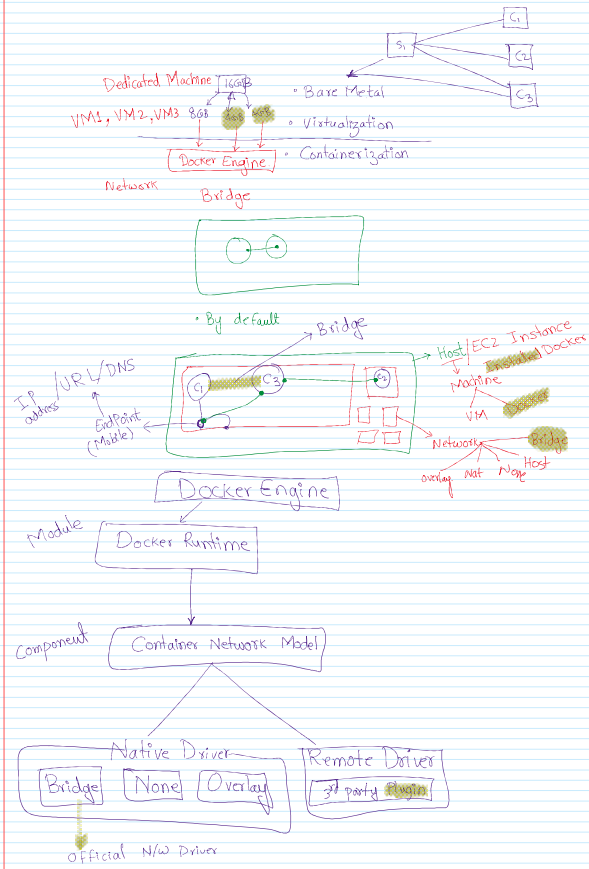 C1
S1
C2
C3
Dedicated Machine 16GB
• Bare Metal
VM1, VM2, VM3 8GB 4GB 4GB
• Virtualization
Docker Engine
• Containerization
Network
Bridge
• By default
Bridge
Host/EC2 Instance
Installed Docker
Machine
VM
Docker
IP address /URL/DNS
EndPoint
(Mobile)
C1
C3
C2
Network
Bridge
Host
None
Nat
Overlay
Docker Engine
Module
Docker Runtime
Component
Container Network Model
Native Driver
Remote Driver
Bridge
None
Overlay
3rd party Plugin
Official N/W Driver